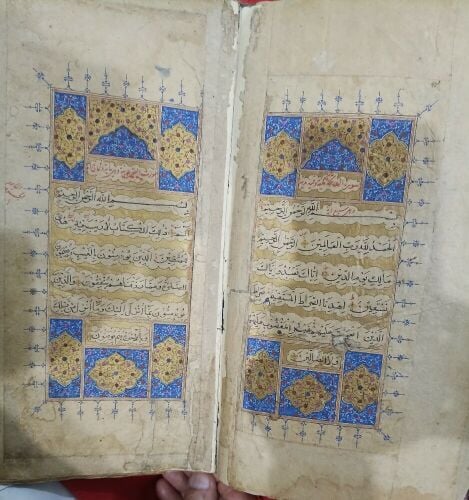 بسم الله الرحمن الرحيم
الحمد لله رب العالمين الرحمن الرحيم
مالك يوم الدين اياك نعبد واياك
نستعين اهدنا الصراط المستقيم صراط
الذين انعمت عليهم غير المغضوب عليهم
ولا الضالين
بسم الله الرحمن الرحيم
الم ذلك الكتاب لا ريب فيه هدى
للمتقين الذين يؤمنون بالغيب ويقيمون
الصلوة ومما رزقناهم ينفقون والذين
يؤمنون بما انزل اليك وما انزل من قبلك
وبالاخرة هم يوقنون